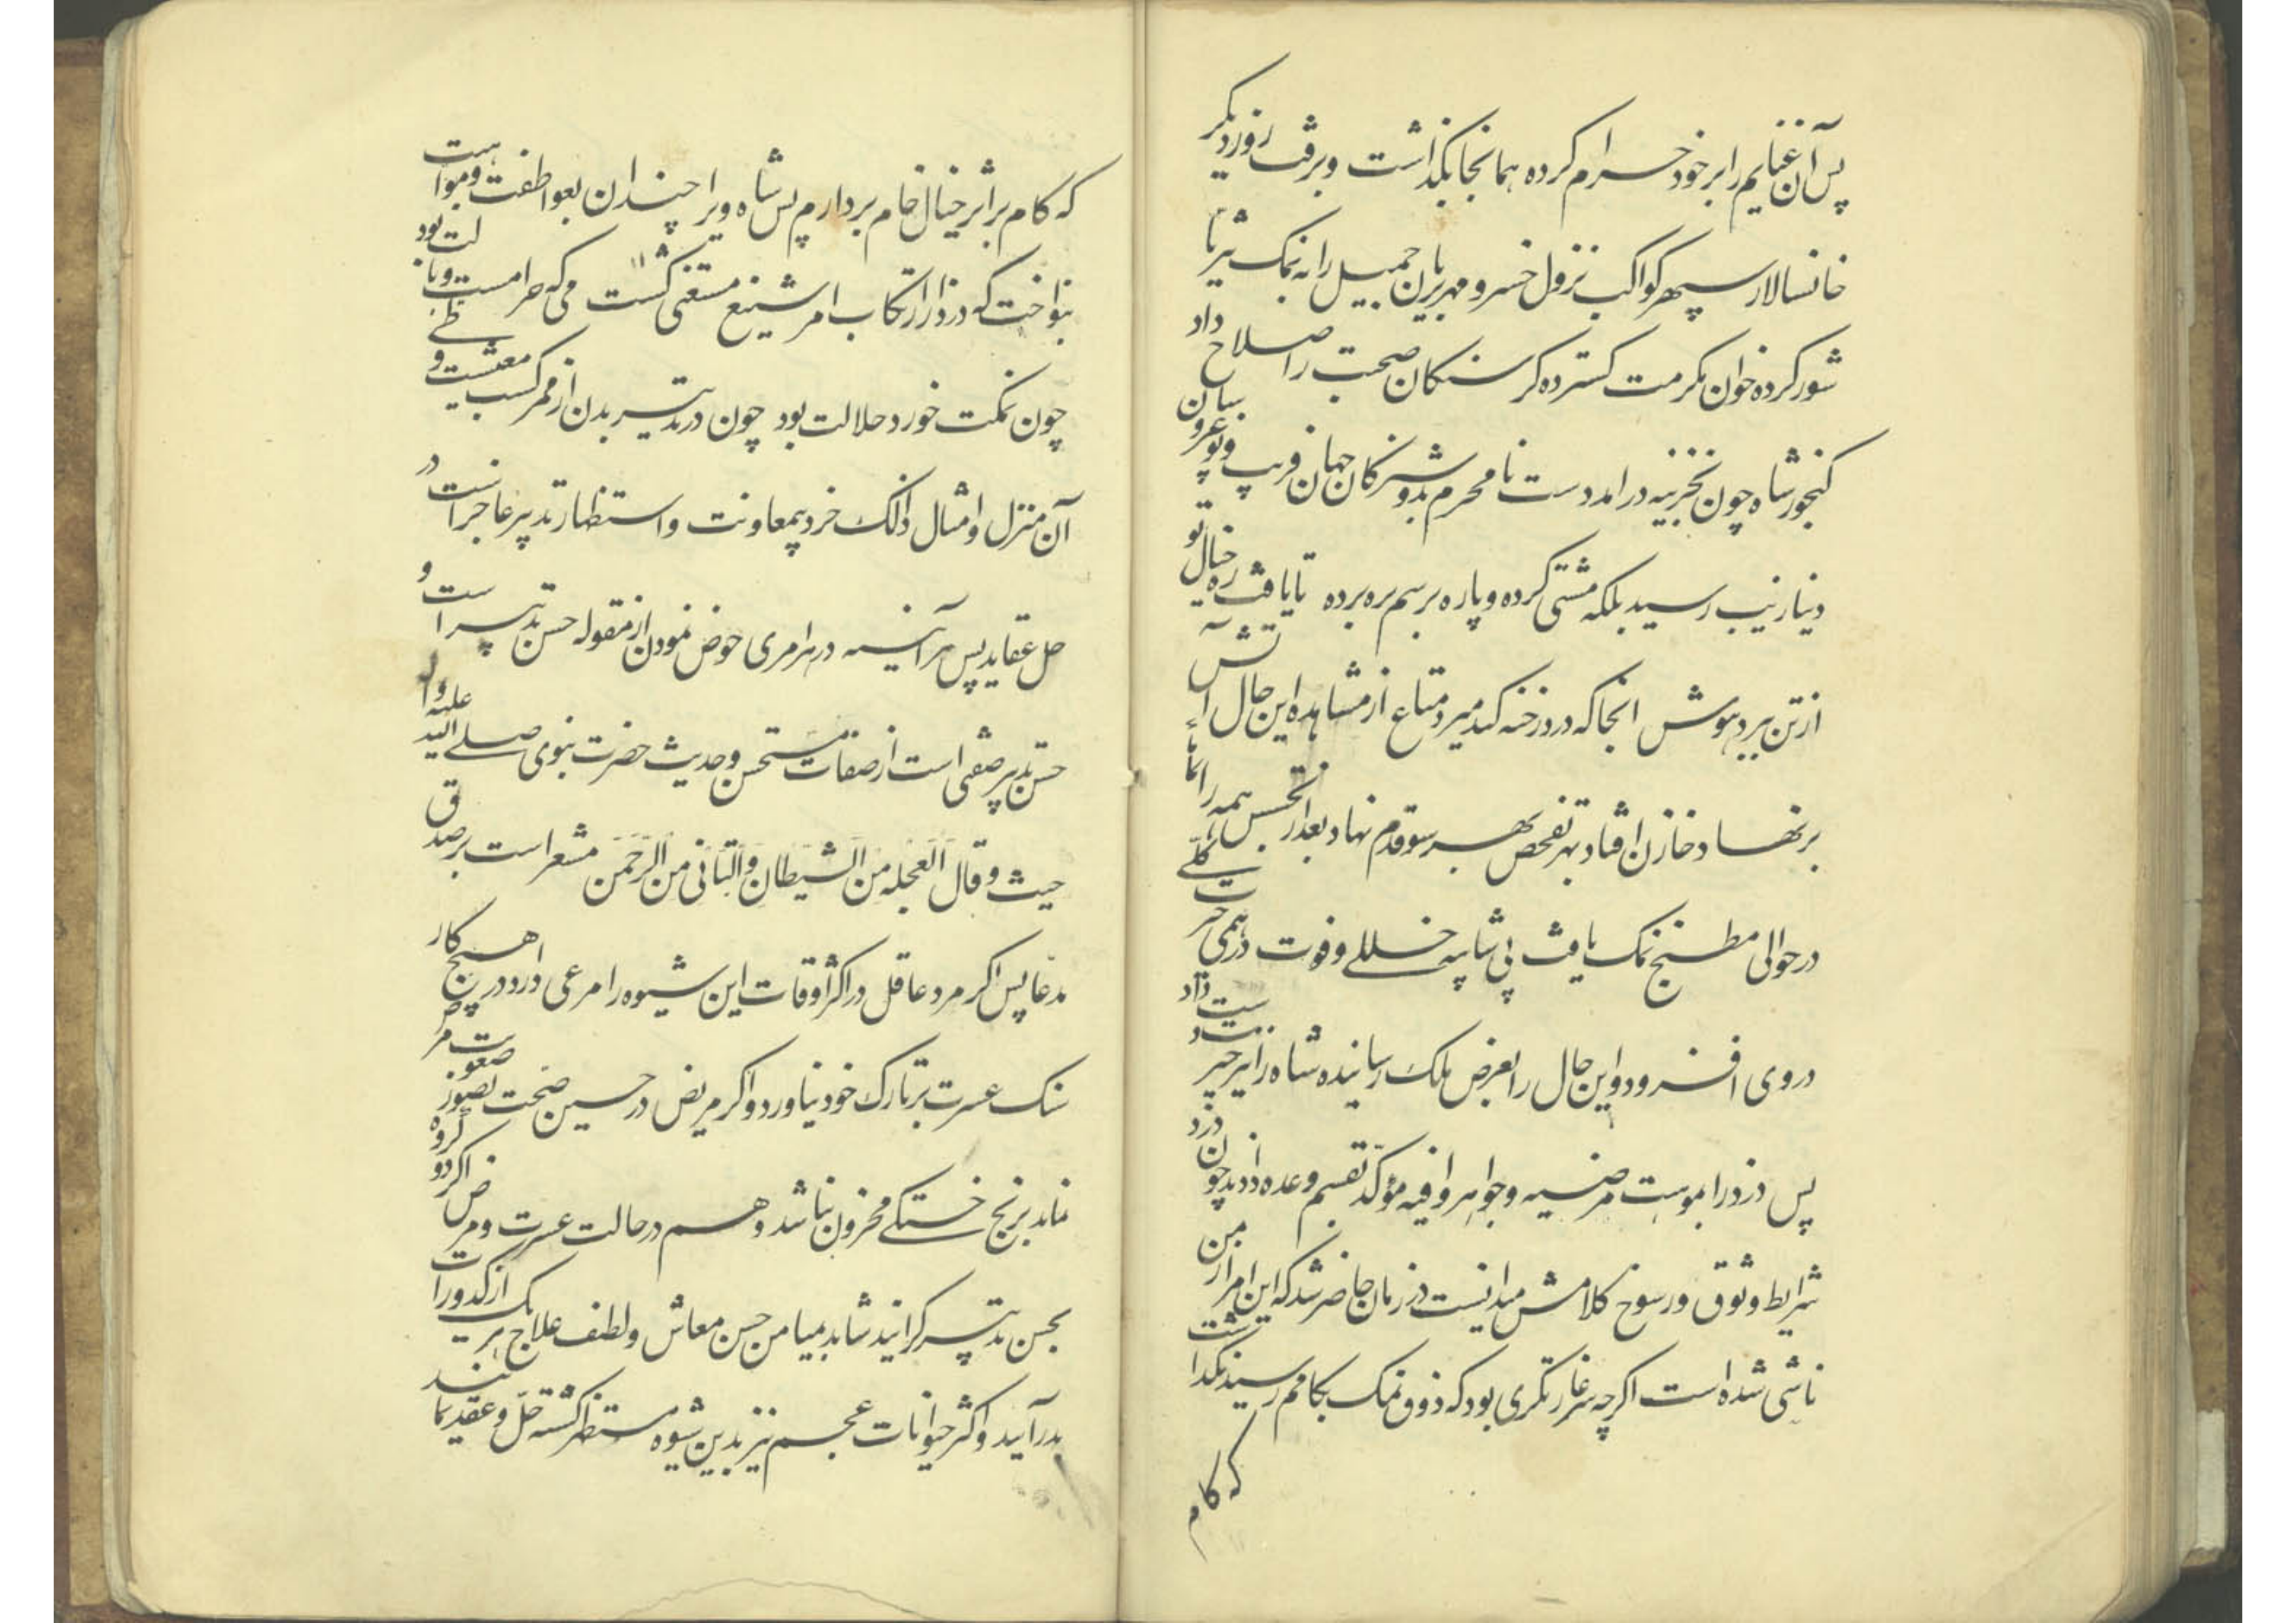 پس آن غنایم را بر خود حرام کرده همانجا بکذاشت و برفت روز دیکر
خانسالار سپهر کواکب نزول خسرو مهر بریان جمیل را نه نمک شیر تا
شور کرده خوان مکرمت کسترده کرسنکان صحبت را صلاح داد
کنجور شاه چون بخزینه درامد دست نامحرم بدوشیزکان جهان فریب و نوعروسان
دینار نیب رسید بلکه مشتی کرده و پاره برسم بره برده تا یافت ره خیال تو
از تن ببرد هوش انجا که درد رخنه کند میرد متاع از مشاهده این حال آتش
بر نهاد خازن افتاد بهر تفحص بهر سو قدم نهاد بعد از تجسس همه را
در حوالی مطبخ نمک یافت بی شایبه خللی و فوت درهمی حیرت
در وی افزود و این حال را بعرض ملک رسانیده شاه را نیز حیرت دست داد
پس دزد را بموست مرضیه و جواهر وافیه مؤکد بقسم وعده داد دزد چون
شرایط وثوق و رسوخ کلامش میدانست در زمان حاضر شد که این امر از من
ناشی شده است اکرچه سر غارتکری بود که ذوق نمک بکامم رسید نکداشت
که کام
که کام بر اثر خیال خام بردارم پس شاه ویرا چندان بعواطفت و مواهبت
بنواخت که دزد از ارتکاب امر شنیع مستغنی کشت می که حرامست وبالت بود
چون نمکت خورد حلالت بود چون در تدبیر بدن از ممر کسب معیشت و
آن منزل و امثال ذلک خرد بمعاونت و استظهار تدبیر عاجر است در
حل عقاید پس هر آینه در هر امری خوض نمودن از مقوله حسن تدبیر است و
حسن تدبیر صفتی است از صفات مستحسن و حدیث حضرت نبوی صلی الله علیه و آله
حیث و قال العجله من الشیطان و التانی من الرحمن مشعر است بر صدق
مدعا پس اکر مرد عاقل در اکثر اوقات این شیوه را مرعی دارد در هیچ کار
سنک عسرت بر تارک خود نیاورد و اکر مریض در حسین صحت بصور صعوبت مرض
نماید برنج خستکی محزون نباشد و هم در حالت عسرت و مرض اکر دو کروه
بحسن تدبیر کرانید شاید بمیامن حسن معاش و لطف علاج هر یک از کدورات
بدر آیند و اکثر حیوانات عجم نیز بدین شیوه مستظهر کشته حل و عقد نمایند